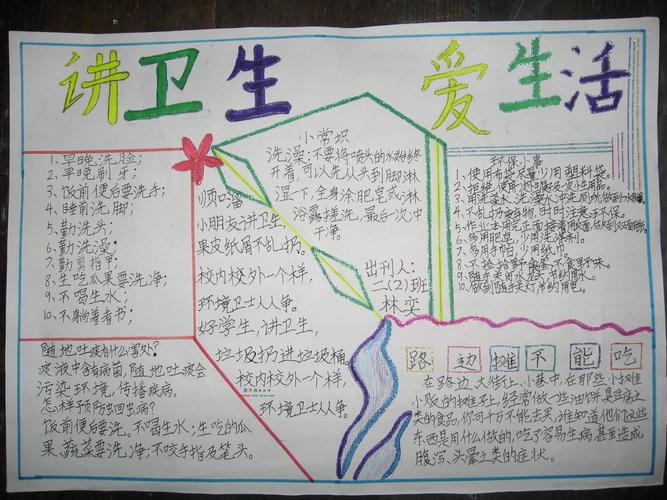 讲卫生 爱生活
1、早晚洗脸；
2、早晚刷牙；
3、饭前便后要洗手；
4、睡前洗脚；
5、勤洗头；
6、勤洗澡；
7、勤剪指甲；
8、生吃瓜果要洗净；
9、不喝生水；
10、不躺着看书；
随地吐痰有什么害处?
痰液中含有病菌，随地吐痰会
污染环境，传播疾病。
怎样预防蛔虫病?
饭前便后要洗。不喝生水；生吃的瓜
果、蔬菜要洗净；不咬手指及笔头。
顺口溜
小朋友讲卫生，
果皮纸屑不乱扔。
校内校外一个样，
环境卫士人人争。
好学生，讲卫生，
垃圾扔进垃圾桶。
校内校外一个样，
环境卫士人人争。
小常识
洗澡：不要将喷头的水始终
开着，可以先从头到脚淋
湿一下，全身涂肥皂或淋
浴露搓洗，最后一次冲
干净。
出刊人：
二(2)班
林奕
环保小事
1、使用布袋，尽量少用塑料袋。
4、不乱扔废弃物，时时注意环保。
7、多用手帕，少用纸巾。
10、做到随手关灯，节约用电。
路边摊不能吃
在路边、大街上、小巷中，在那些小摊
小贩的摊子上，经常做一些油炸、臭豆腐之
类的食品，你可千万不能去买，谁知道他们这些
东西是用什么做的，吃了容易生病，甚至造成
腹泻、头晕之类的症状。